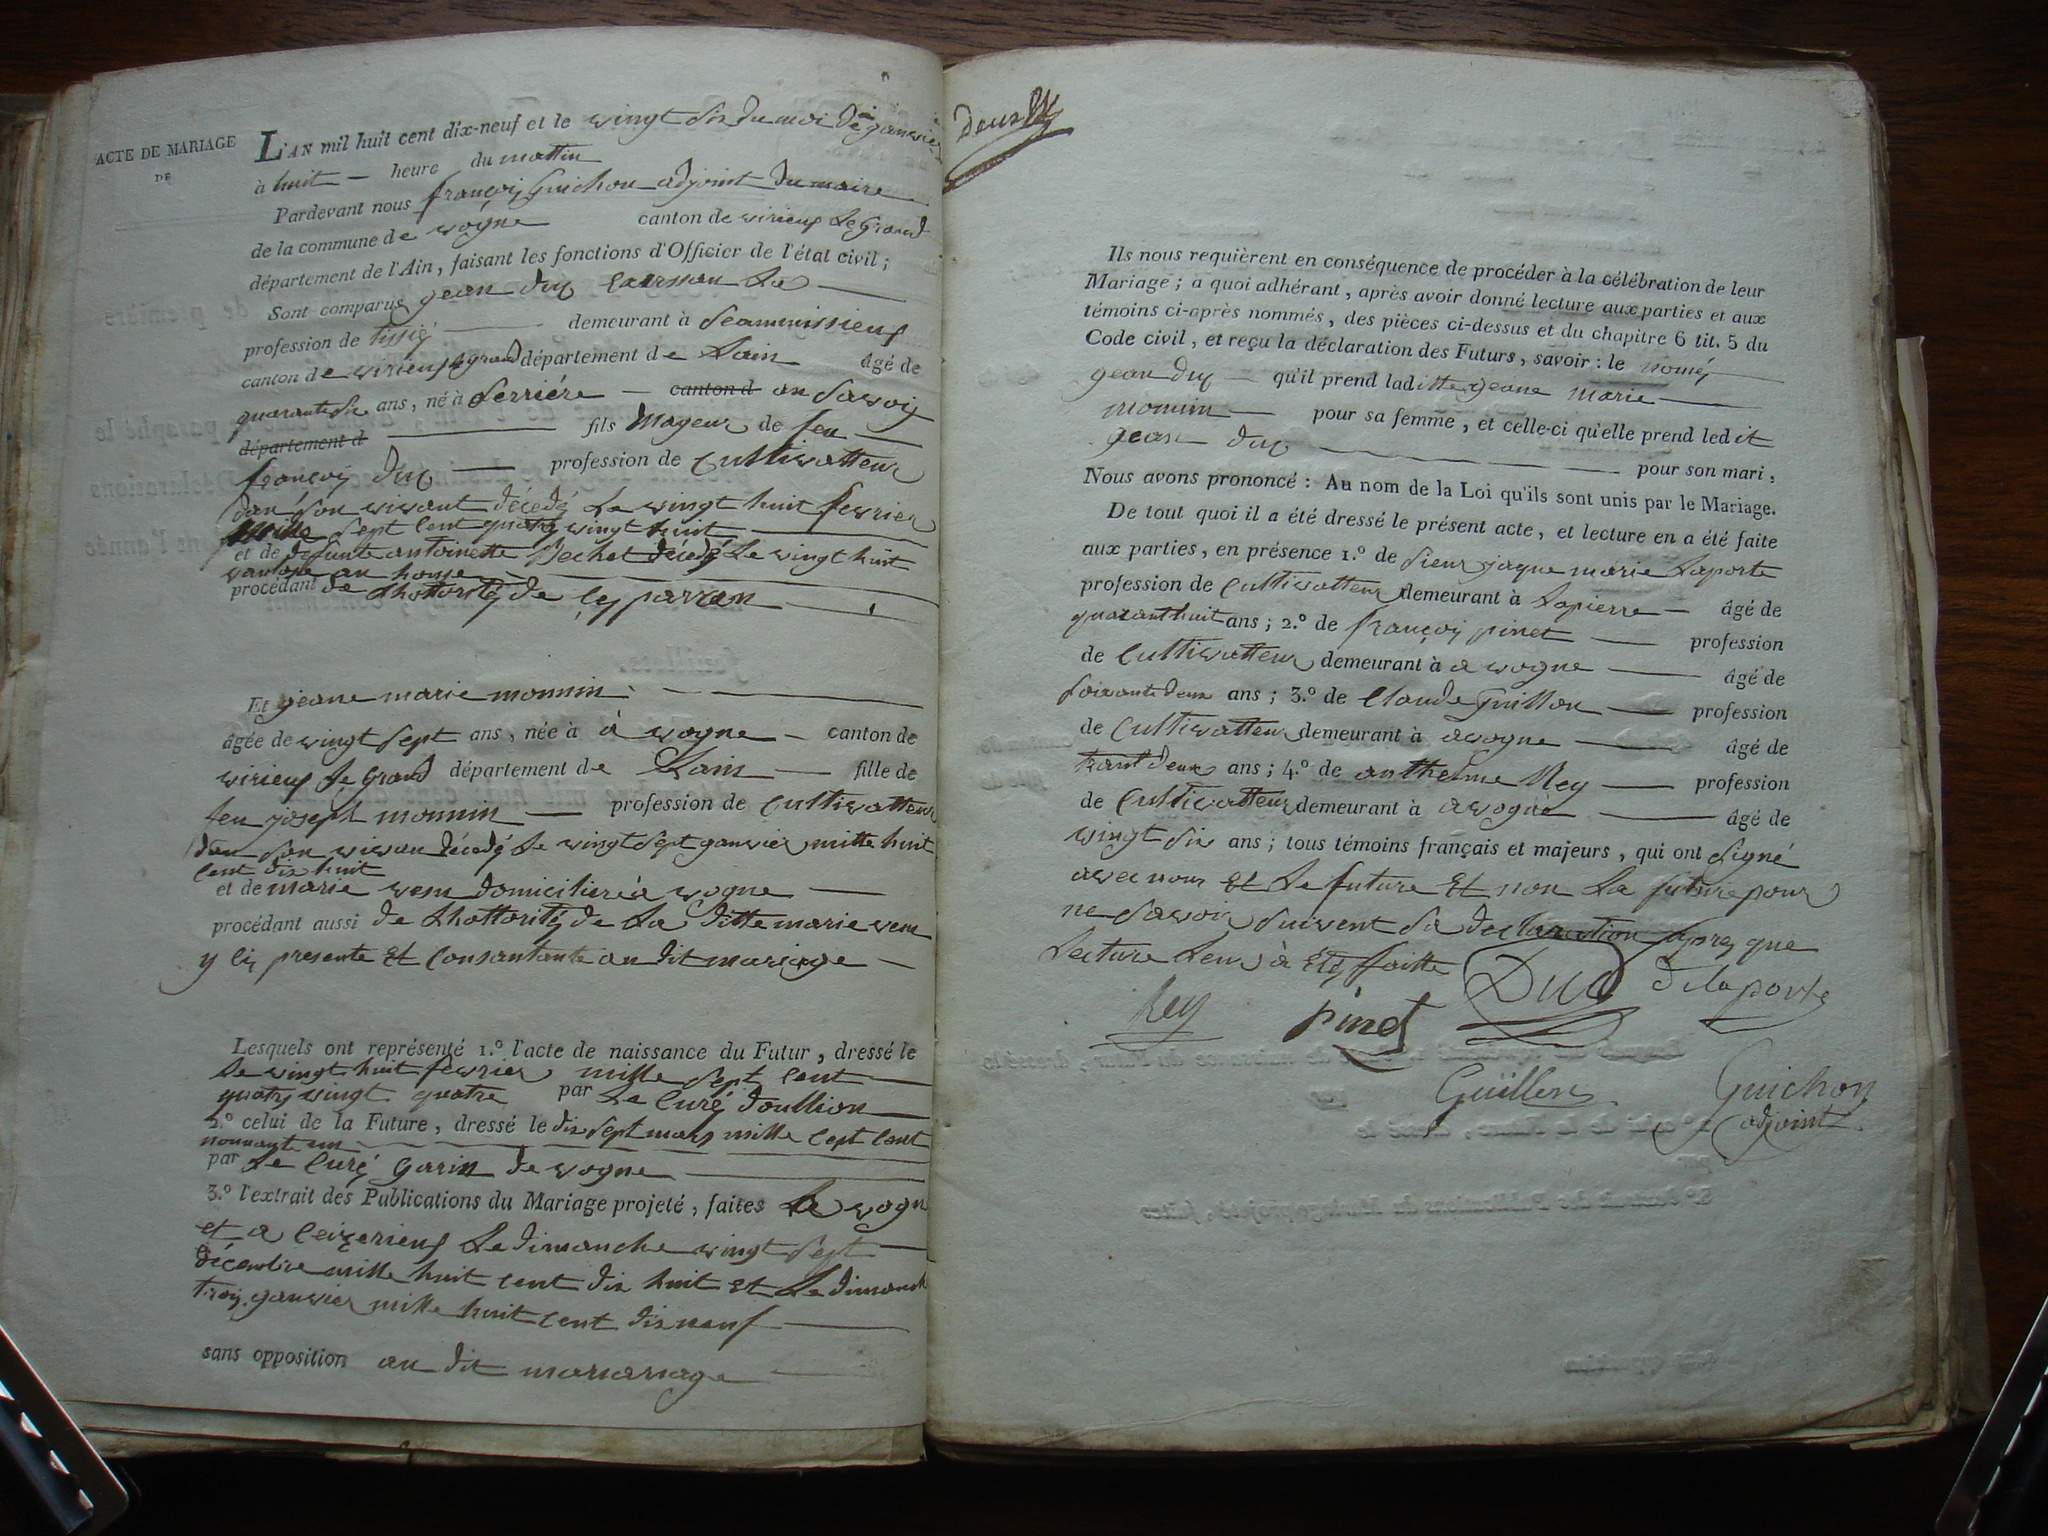 ACTE DE MARIAGE
DE
L'AN mil huit cent dix-neuf et le wingt six du moi de ganvier
à huit — heure du mattin
Pardevant nous françoij Guichon adjoint du maire
de la commune de wogne canton de wirieux Le Grand
département de l'Ain, faisant les fonctions d'Officier de l'état civil;
Sont comparus gean duc
profession de demeurant à
canton de wirieux le grand département de Lain âgé de
quarante six ans, né à Serriére — canton d an Savoij
département d — fils Mageur de feu —
françoij duc — profession de Cultiwatteur
dan son wiwant décedé Le wingt huit fevrier
Mille sept cent quatre wingt huit —
et de defunte antoinette Bechet décédé Le wingt huit
vantose an honse —
procédant de Lhottorité de —
Et jeane marie monnin —
âgée de wingt sept ans, née à à wogne — canton de
wirieux Le Grand département de Lain — fille de
feu joseph monnin — profession de Cultiwatteur
dan son wiwan décedé Le wingt sept ganvier mille huit
cent dix huit
et de marie wem domiciliere à wogne —
procédant aussi de Lhottorité de La ditte marie wem
y ci presente et Consantante au dit mariage —
Lesquels ont représenté 1.º l'acte de naissance du Futur, dressé le
Le wingt huit fevrier mille sept cent —
quatre wingt quatre par Le Curé doullion —
2.º celui de la Future, dressé le dix sept mars mille sept cent
nonnante un —
par Le Curé garin de wogne —
3.º l'extrait des Publications du Mariage projeté, faites a wogne
et a Ceizerieux Le dimanche wingt sept —
décembre mille huit cent dix huit et Le dimanch
troij ganvier mille huit cent dix neuf —
sans opposition au dit mariariage —
Deux
Ils nous requièrent en conséquence de procéder à la célébration de leur
Mariage; a quoi adhérant, après avoir donné lecture aux parties et aux
témoins ci-après nommés, des pièces ci-dessus et du chapitre 6 tit. 5 du
Code civil, et reçu la déclaration des Futurs, savoir: le nomé —
gean duc — qu'il prend laditte jeane marie —
monnin — pour sa femme, et celle-ci qu'elle prend ledit
gean duc — pour son mari,
Nous avons prononcé: Au nom de la Loi qu'ils sont unis par le Mariage.
De tout quoi il a été dressé le présent acte, et lecture en a été faite
aux parties, en présence 1.º de Sieur jaque marie Laporte
profession de Cultiwatteur demeurant à Lapierre — âgé de
quaranthuit ans; 2.º de françoij pinet — profession
de Cultiwatteur demeurant à a wogne — âgé de
soixante deux ans; 3.º de Claude Guillon — profession
de Cultiwatteur demeurant à a wogne — âgé de
trant deux ans; 4.º de anthelme Rey — profession
de Cultiwatteur demeurant à a wogne — âgé de
wingt six ans; tous témoins français et majeurs, qui ont Signé
avec nous et Le future et non La future pour
ne Savoir suivent Sa declaration apres que
Lecture Leur à été faitte
Rey pinet Duc delaporte
Guillon Guichon
adjoint